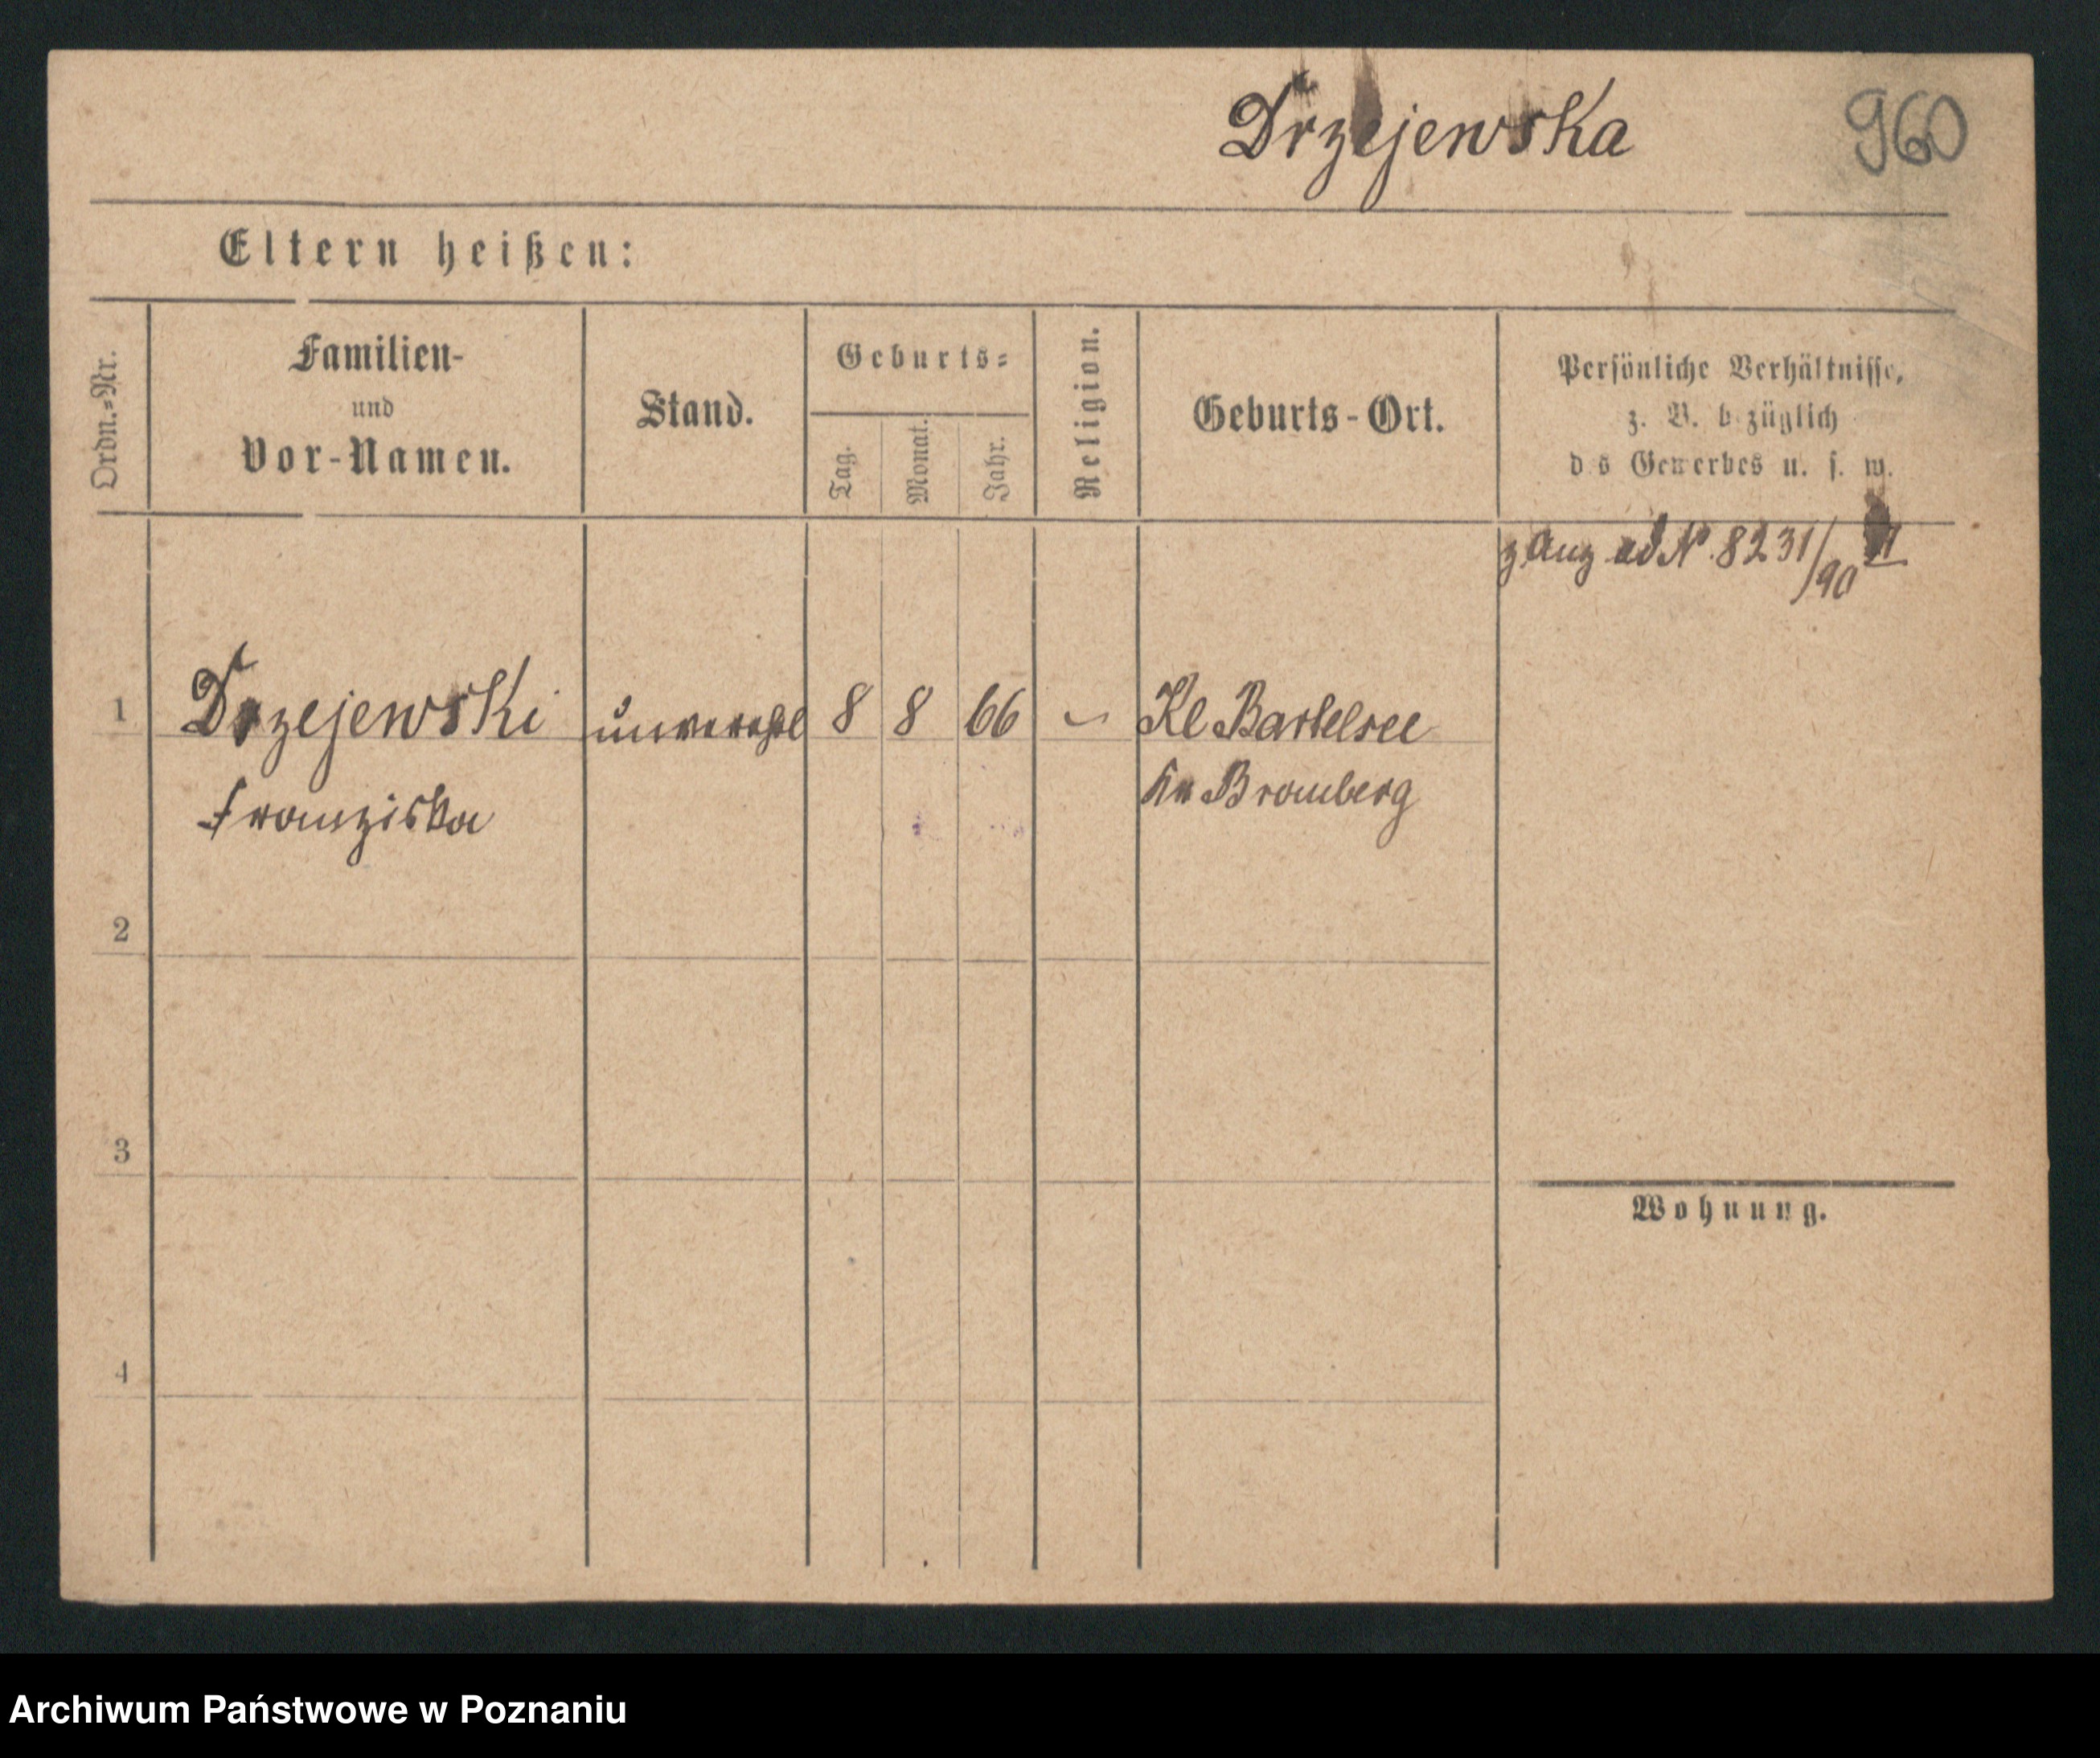 Drzejewska 960
Eltern heißen:
Ordn.=Nr.
Familien-
und
Vor-Namen.
Stand.
Geburts=
Tag.
Monat.
Jahr.
Religion.
Geburts-Ort.
Persönliche Verhältnisse,
z. B. bezüglich
des Gewerbes u. s. w.
z Anz ad No. 8231/90
1 Drzejewski unverehel 8 8 66 Kl Bartelsee
Franziska Kr Bromberg
2
3
Wohnung.
4
Archiwum Państwowe w Poznaniu